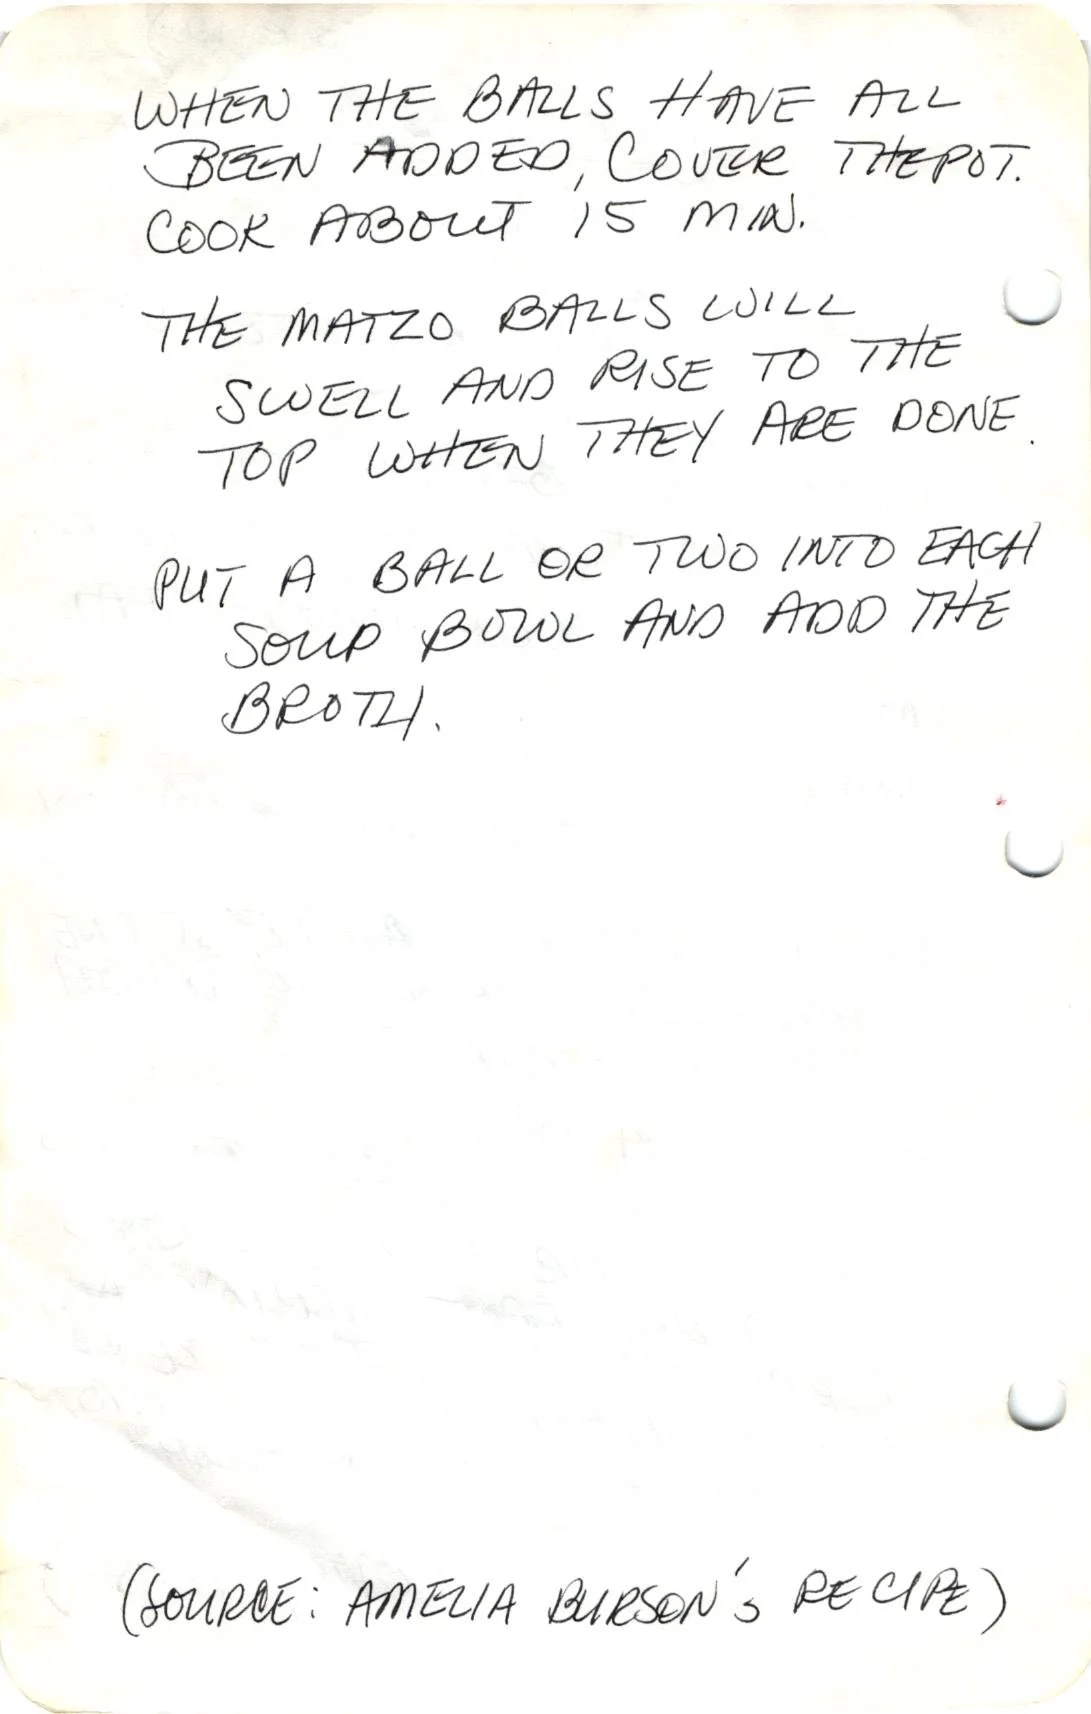 WHEN THE BALLS HAVE ALL
BEEN ADDED, COVER THE POT.
COOK ABOUT 15 MIN.
THE MATZO BALLS WILL
SWELL AND RISE TO THE
TOP WHEN THEY ARE DONE.
PUT A BALL OR TWO INTO EACH
SOUP BOWL AND ADD THE
BROTH.
(SOURCE: AMELIA BURSON'S RECIPE)